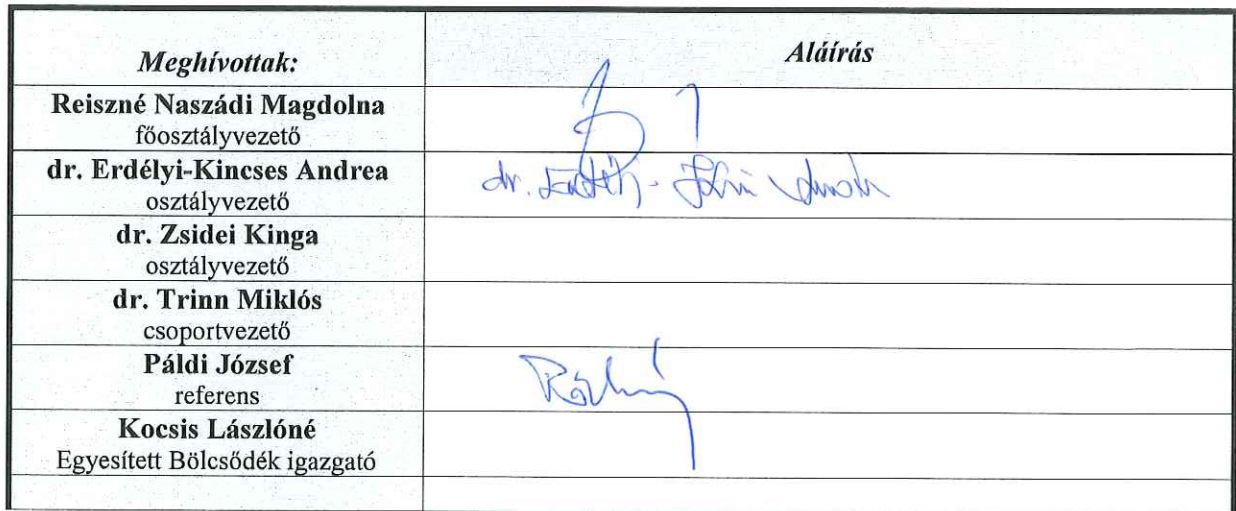 Meghívottak:
Aláírás
Reiszné Naszádi Magdolna
főosztályvezető
dr. Erdélyi-Kincses Andrea
osztályvezető
dr.
dr. Zsidei Kinga
osztályvezető
dr. Trinn Miklós
csoportvezető
Páldi József
referens
Kocsis Lászlóné
Egyesített Bölcsődék igazgató